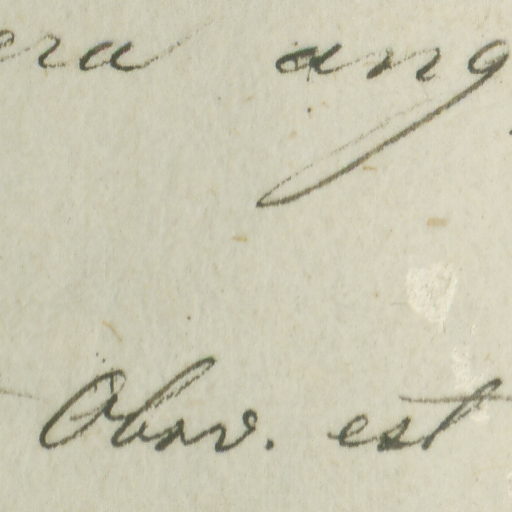 era ang
Obsv. est